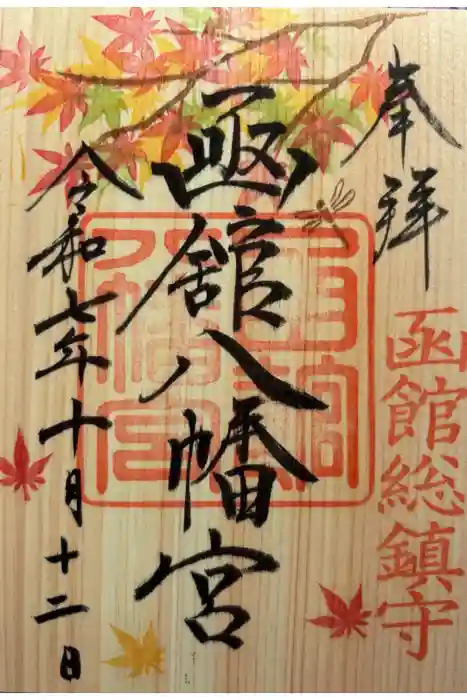 奉拝
函館総鎮守
函館八幡宮
令和七年十月十二日